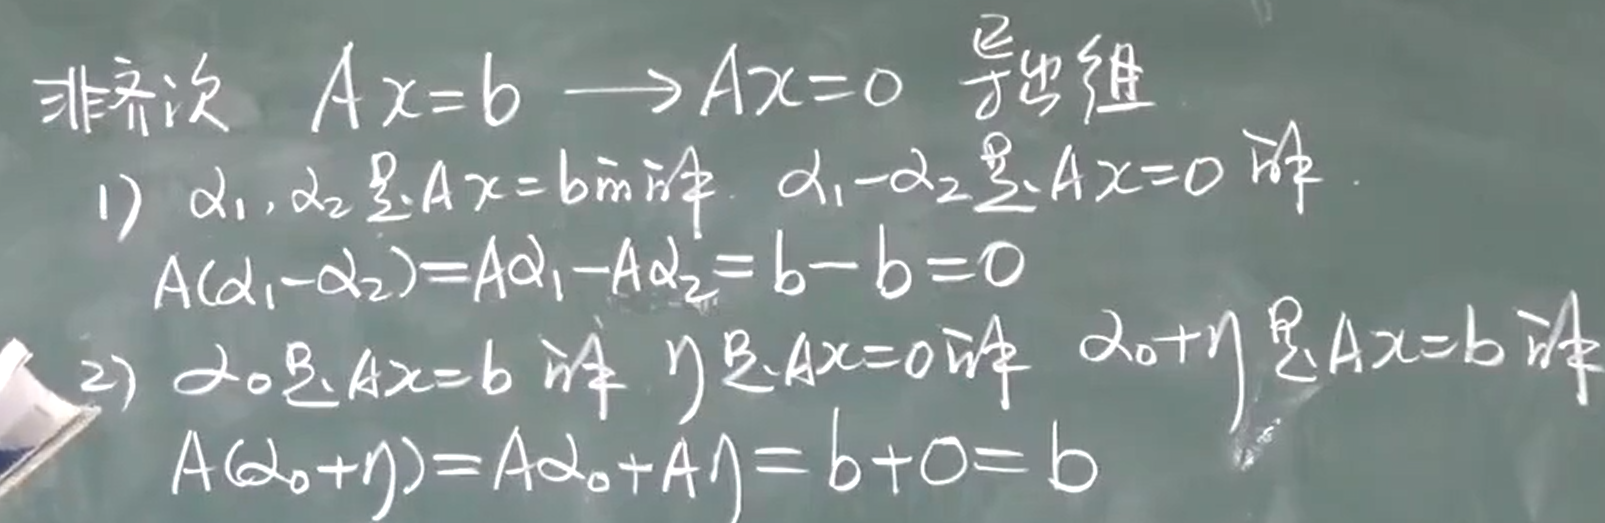 非齐次 Ax=b ⟶ Ax=0 导出组
1) α₁,α₂是Ax=b的解. α₁-α₂是Ax=0解.
A(α₁-α₂)=Aα₁-Aα₂=b-b=0
2) α₀是Ax=b解 η是Ax=0解 α₀+η是Ax=b解
A(α₀+η)=Aα₀+Aη=b+0=b